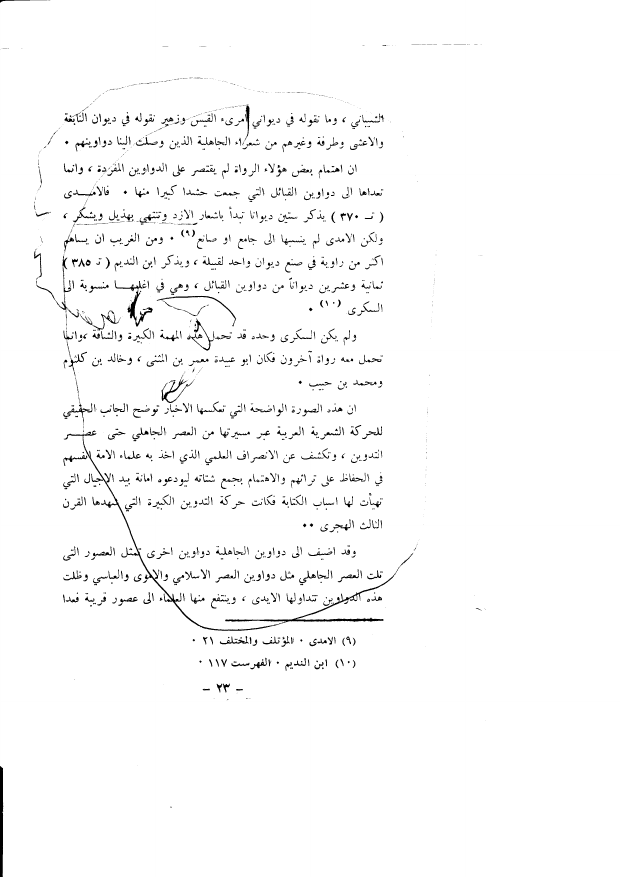 الشيباني ، وما نقوله في ديواني امرىء القيس وزهير نقوله في ديوان النابغة
والاعشى وطرفة وغيرهم من شعراء الجاهلية الذين وصلت الينا دواوينهم ٠
ان اهتمام بعض هؤلاء الرواة لم يقتصر على الدواوين المفردة ، وانما
تعداها الى دواوين القبائل التي جمعت حشدا كبيرا منها ٠ فالامدى
( تـ ٣٧٠ ) يذكر ستين ديوانا تبدأ باشعار الازد وتنتهي بهذيل ويشكر ،
ولكن الامدى لم ينسبها الى جامع او صانع(٩) ٠ ومن الغريب ان يساهم
اكثر من راوية في صنع ديوان واحد لقبيلة ، ويذكر ابن النديم ( تـ ٣٨٥ )
ثمانية وعشرين ديواناً من دواوين القبائل ، وهي في اغلبها منسوبة الى
السكرى (١٠) ٠
ولم يكن السكرى وحده قد تحمل هذه المهمة الكبيرة والشاقة ،وانما
تحمل معه رواة آخرون فكان ابو عبيدة معمر بن المثنى ، وخالد بن كلثوم
ومحمد بن حبيب ٠
ان هذه الصورة الواضحة التي تعكسها الاخبار توضح الجانب الحقيقي
للحركة الشعرية العربية عبر مسيرتها من العصر الجاهلي حتى عصر
التدوين ، وتكشف عن الانصراف العلمي الذي اخذ به علماء الامة انفسهم
في الحفاظ على تراثهم والاهتمام بجمع شتاته ليودعوه امانة بيد الاجيال التي
تهيأت لها اسباب الكتابة فكانت حركة التدوين الكبيرة التي شهدها القرن
الثالث الهجرى ٠٠
وقد اضيف الى دواوين الجاهلية دواوين اخرى تمثل العصور التى
تلت العصر الجاهلي مثل دواوين العصر الاسلامي والاموى والعباسي وظلت
هذه الدواوين تتداولها الايدى ، وينتفع منها العلماء الى عصور قريبة فعدا
(٩) الامدى ٠ المؤتلف والمختلف ٢١ ٠
(١٠) ابن النديم ٠ الفهرست ١١٧ ٠
– ٢٣ –